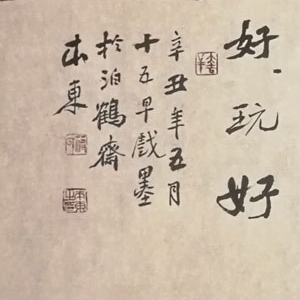 好玩好
辛丑年五月
十五早戲墨
於泊鶴齋
木東